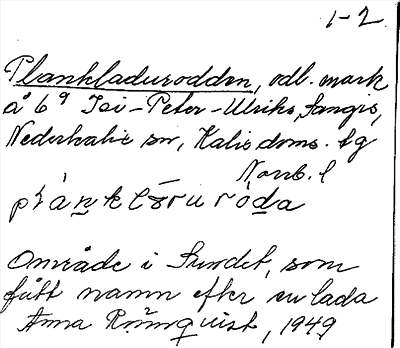 1-2
Plankladurodden, odl. mark
å 6⁹ Isi-Peter-Ulriks, Sangis,
Nederkalix sn, Kalix doms. lg
Norrb. l
Område i Sundet, som
fått namn efter en lada
Anna Rönnquist, 1949